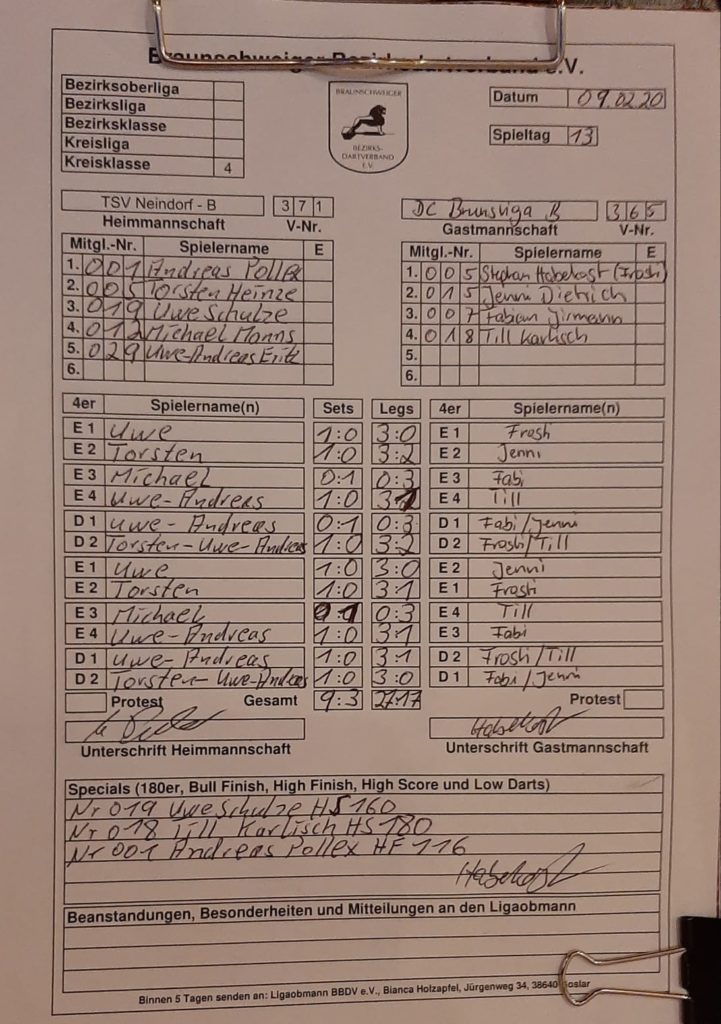 Braunschweiger Bezirksdartverband e.V.
Bezirksoberliga
Bezirksliga
Bezirksklasse
Kreisliga
Kreisklasse 4
BRAUNSCHWEIGER
BEZIRKS-
DARTVERBAND
E.V.
Datum 09.02.20
Spieltag 13
TSV Neindorf - B 3 7 1
Heimmannschaft V-Nr.
DC Brunsviga B 3 6 5
Gastmannschaft V-Nr.
Mitgl.-Nr. Spielername E
1. 0 0 1 Andreas Pollex
2. 0 0 5 Torsten Heinze
3. 0 1 9 Uwe Schulze
4. 0 1 2 Michael Monns
5. 0 2 9 Uwe-Andreas
6.
Mitgl.-Nr. Spielername E
1. 0 0 5 Stephan Habekost (Frosh)
2. 0 1 5 Jenni Dietrich
3. 0 0 7 Fabian Jirmann
4. 0 1 8 Till Karlisch
5.
6.
4er Spielername(n) Sets Legs 4er Spielername(n)
E 1 Uwe 1:0 3:0 E 1 Frosh
E 2 Torsten 1:0 3:2 E 2 Jenni
E 3 Michael 0:1 0:3 E 3 Fabi
E 4 Uwe-Andreas 1:0 3:1 E 4 Till
D 1 Uwe-Andreas 0:1 0:3 D 1 Fabi/Jenni
D 2 Torsten-Uwe-Andreas 1:0 3:2 D 2 Frosh/Till
E 1 Uwe 1:0 3:0 E 2 Jenni
E 2 Torsten 1:0 3:1 E 1 Frosh
E 3 Michael 0:1 0:3 E 4 Till
E 4 Uwe-Andreas 1:0 3:1 E 3 Fabi
D 1 Uwe-Andreas 1:0 3:1 D 2 Frosh/Till
D 2 Torsten-Uwe-Andreas 1:0 3:0 D 1 Fabi/Jenni
Protest Gesamt 9:3 27:17 Protest
Habekost
Unterschrift Heimmannschaft Unterschrift Gastmannschaft
Specials (180er, Bull Finish, High Finish, High Score und Low Darts)
Nr 019 Uwe Schulze HS 160
Nr 018 Till Karlisch HS 180
Nr 001 Andreas Pollex HF 116
Habekost
Beanstandungen, Besonderheiten und Mitteilungen an den Ligaobmann
Binnen 5 Tagen senden an: Ligaobmann BBDV e.V., Bianca Holzapfel, Jürgenweg 34, 38640 Goslar